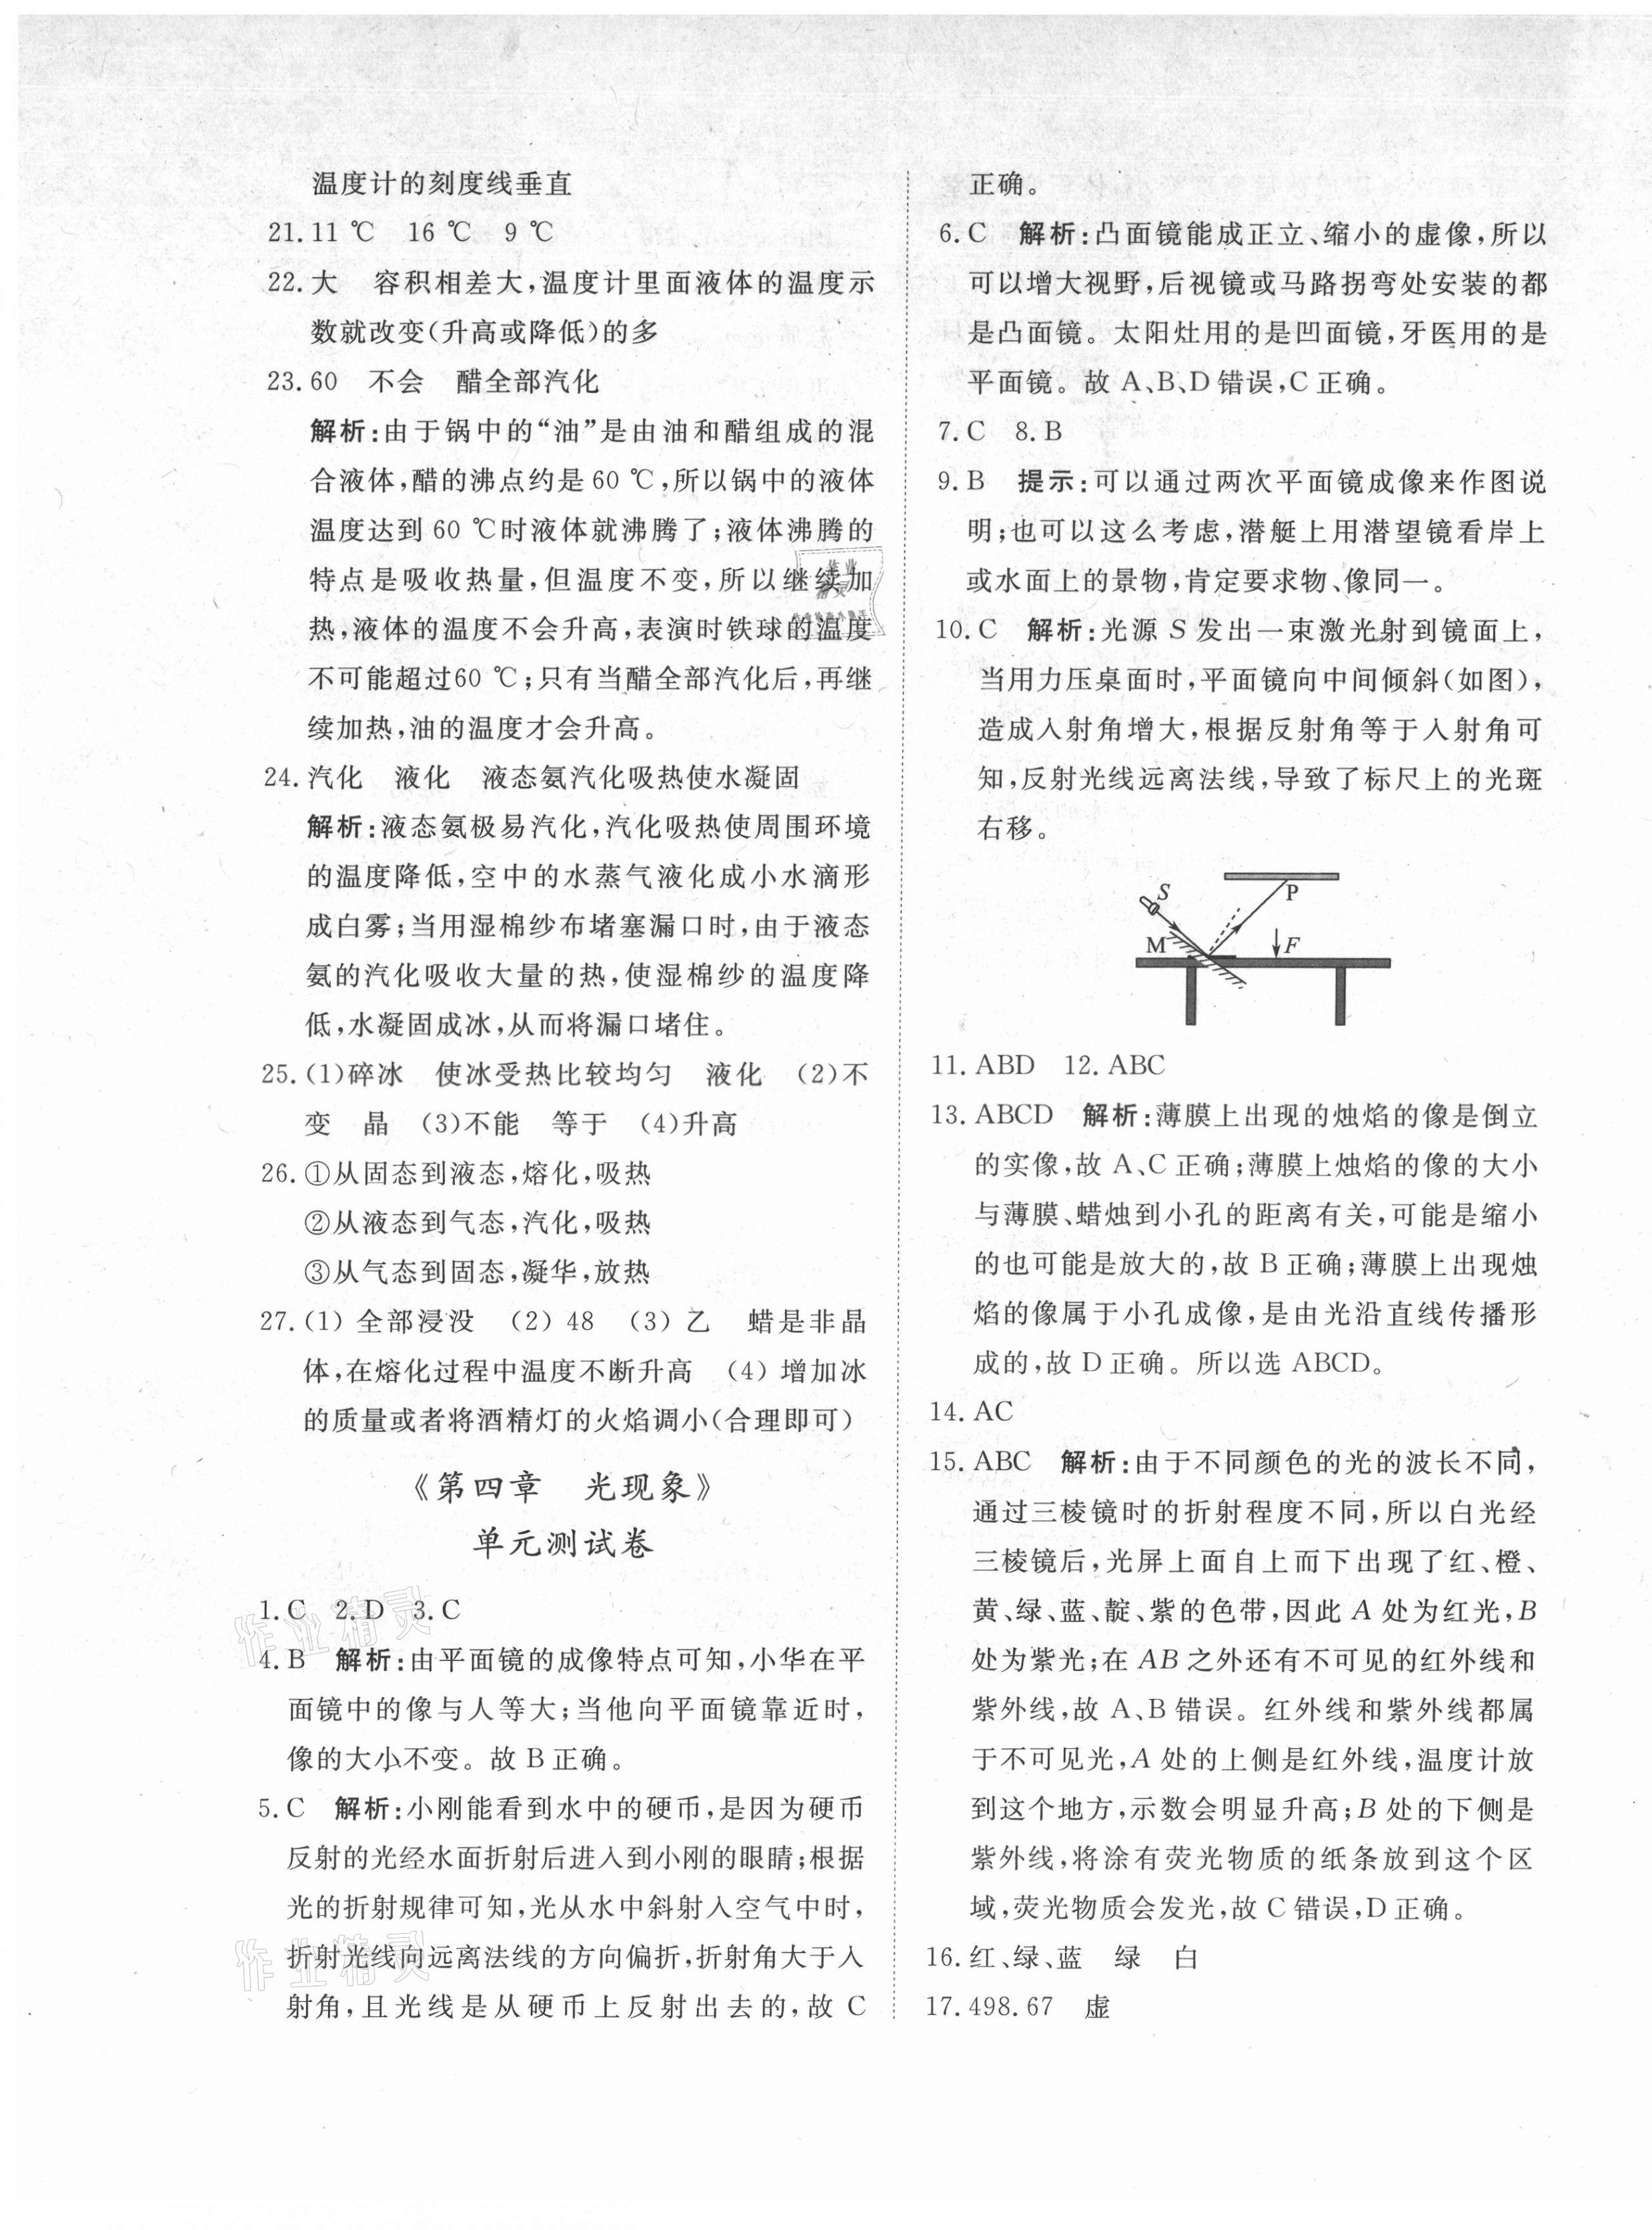 温度计的刻度线垂直
21.11 ℃ 16 ℃ 9 ℃
22.大 容积相差大,温度计里面液体的温度示
数就改变(升高或降低)的多
23.60 不会 醋全部汽化
解析:由于锅中的“油”是由油和醋组成的混
合液体,醋的沸点约是60 ℃,所以锅中的液体
温度达到60 ℃时液体就沸腾了;液体沸腾的
特点是吸收热量,但温度不变,所以继续加
热,液体的温度不会升高,表演时铁球的温度
不可能超过60 ℃;只有当醋全部汽化后,再继
续加热,油的温度才会升高。
24.汽化 液化 液态氨汽化吸热使水凝固
解析:液态氨极易汽化,汽化吸热使周围环境
的温度降低,空中的水蒸气液化成小水滴形
成白雾;当用湿棉纱布堵塞漏口时,由于液态
氨的汽化吸收大量的热,使湿棉纱的温度降
低,水凝固成冰,从而将漏口堵住。
25.(1)碎冰 使冰受热比较均匀 液化 (2)不
变 晶 (3)不能 等于 (4)升高
26.①从固态到液态,熔化,吸热
②从液态到气态,汽化,吸热
③从气态到固态,凝华,放热
27.(1)全部浸没 (2)48 (3)乙 蜡是非晶
体,在熔化过程中温度不断升高 (4)增加冰
的质量或者将酒精灯的火焰调小(合理即可)
《第四章 光现象》
单元测试卷
1.C 2.D 3.C
4.B 解析:由平面镜的成像特点可知,小华在平
面镜中的像与人等大;当他向平面镜靠近时,
像的大小不变。故B正确。
5.C 解析:小刚能看到水中的硬币,是因为硬币
反射的光经水面折射后进入到小刚的眼睛;根据
光的折射规律可知,光从水中斜射入空气中时,
折射光线向远离法线的方向偏折,折射角大于入
射角,且光线是从硬币上反射出去的,故C
正确。
6.C 解析:凸面镜能成正立、缩小的虚像,所以
可以增大视野,后视镜或马路拐弯处安装的都
是凸面镜。太阳灶用的是凹面镜,牙医用的是
平面镜。故A、B、D错误,C正确。
7.C 8.B
9.B 提示:可以通过两次平面镜成像来作图说
明;也可以这么考虑,潜艇上用潜望镜看岸上
或水面上的景物,肯定要求物、像同一。
10.C 解析:光源S发出一束激光射到镜面上,
当用力压桌面时,平面镜向中间倾斜(如图),
造成入射角增大,根据反射角等于入射角可
知,反射光线远离法线,导致了标尺上的光斑
右移。
S P
M F
11.ABD 12.ABC
13.ABCD 解析:薄膜上出现的烛焰的像是倒立
的实像,故A、C正确;薄膜上烛焰的像的大小
与薄膜、蜡烛到小孔的距离有关,可能是缩小
的也可能是放大的,故B正确;薄膜上出现烛
焰的像属于小孔成像,是由光沿直线传播形
成的,故D正确。所以选ABCD。
14.AC
15.ABC 解析:由于不同颜色的光的波长不同,
通过三棱镜时的折射程度不同,所以白光经
三棱镜后,光屏上面自上而下出现了红、橙、
黄、绿、蓝、靛、紫的色带,因此A处为红光,B
处为紫光;在AB之外还有不可见的红外线和
紫外线,故A、B错误。红外线和紫外线都属
于不可见光,A处的上侧是红外线,温度计放
到这个地方,示数会明显升高;B处的下侧是
紫外线,将涂有荧光物质的纸条放到这个区
域,荧光物质会发光,故C错误,D正确。
16.红、绿、蓝 绿 白
17.498.67 虚
作业精灵
作业精灵
作业
精灵